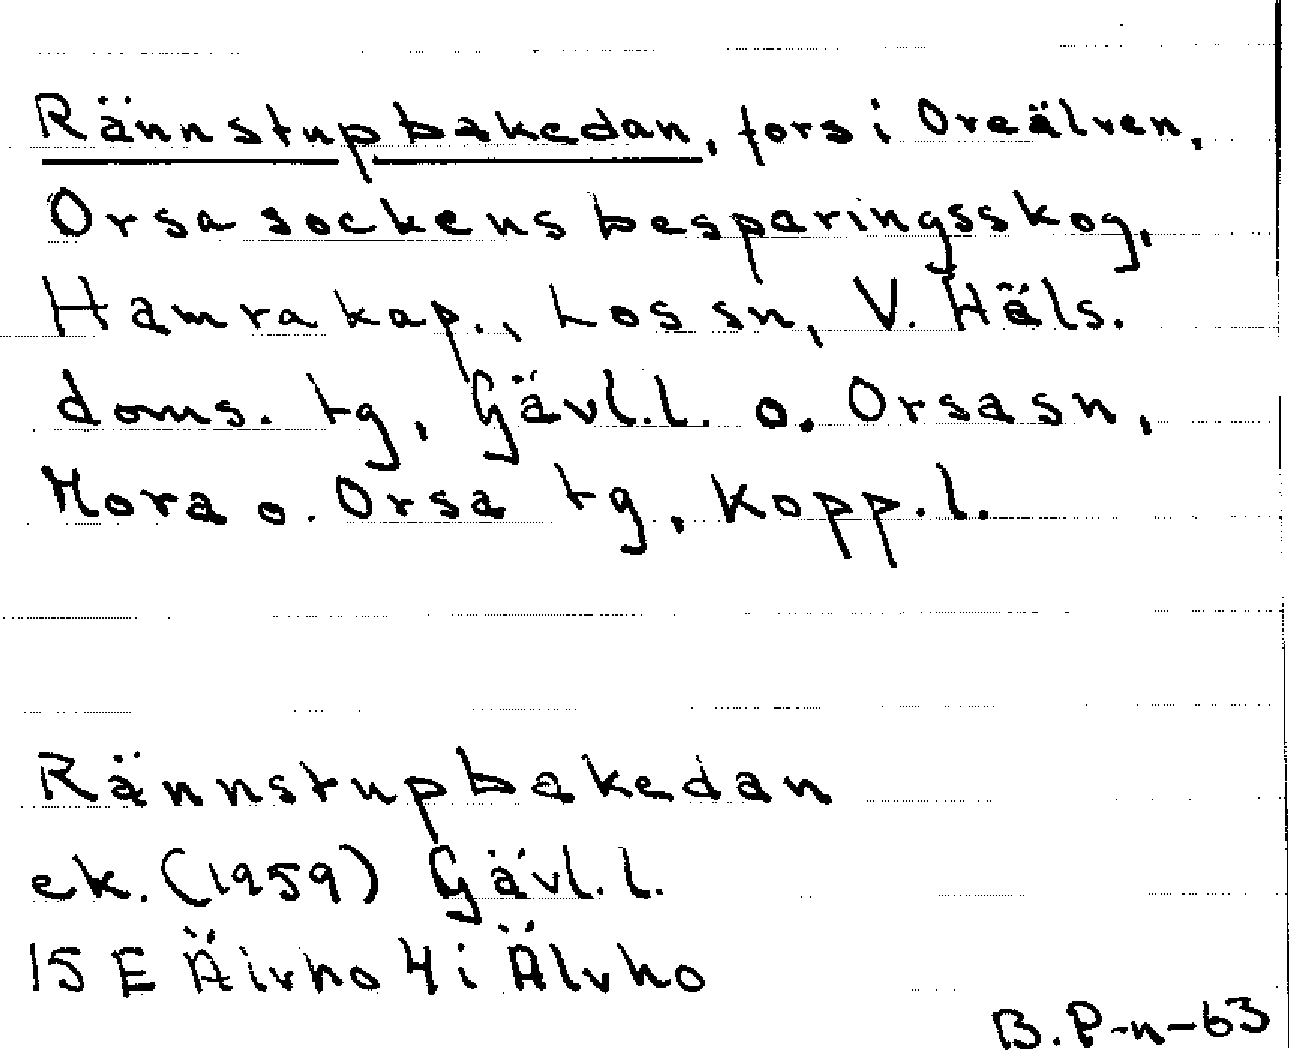 Rännstupbakedan, fors i Oreälven,
Orsa sockens besparingsskog,
Hamra kap., Los sn, V. Häls.
doms. tg, Gävl.l. o. Orsa sn,
Mora o. Orsa tg, Kopp.l.
Rännstupbakedan
ek. (1959) Gävl.l.
15 E Älvho 4 i Älvho
B.P-n-63